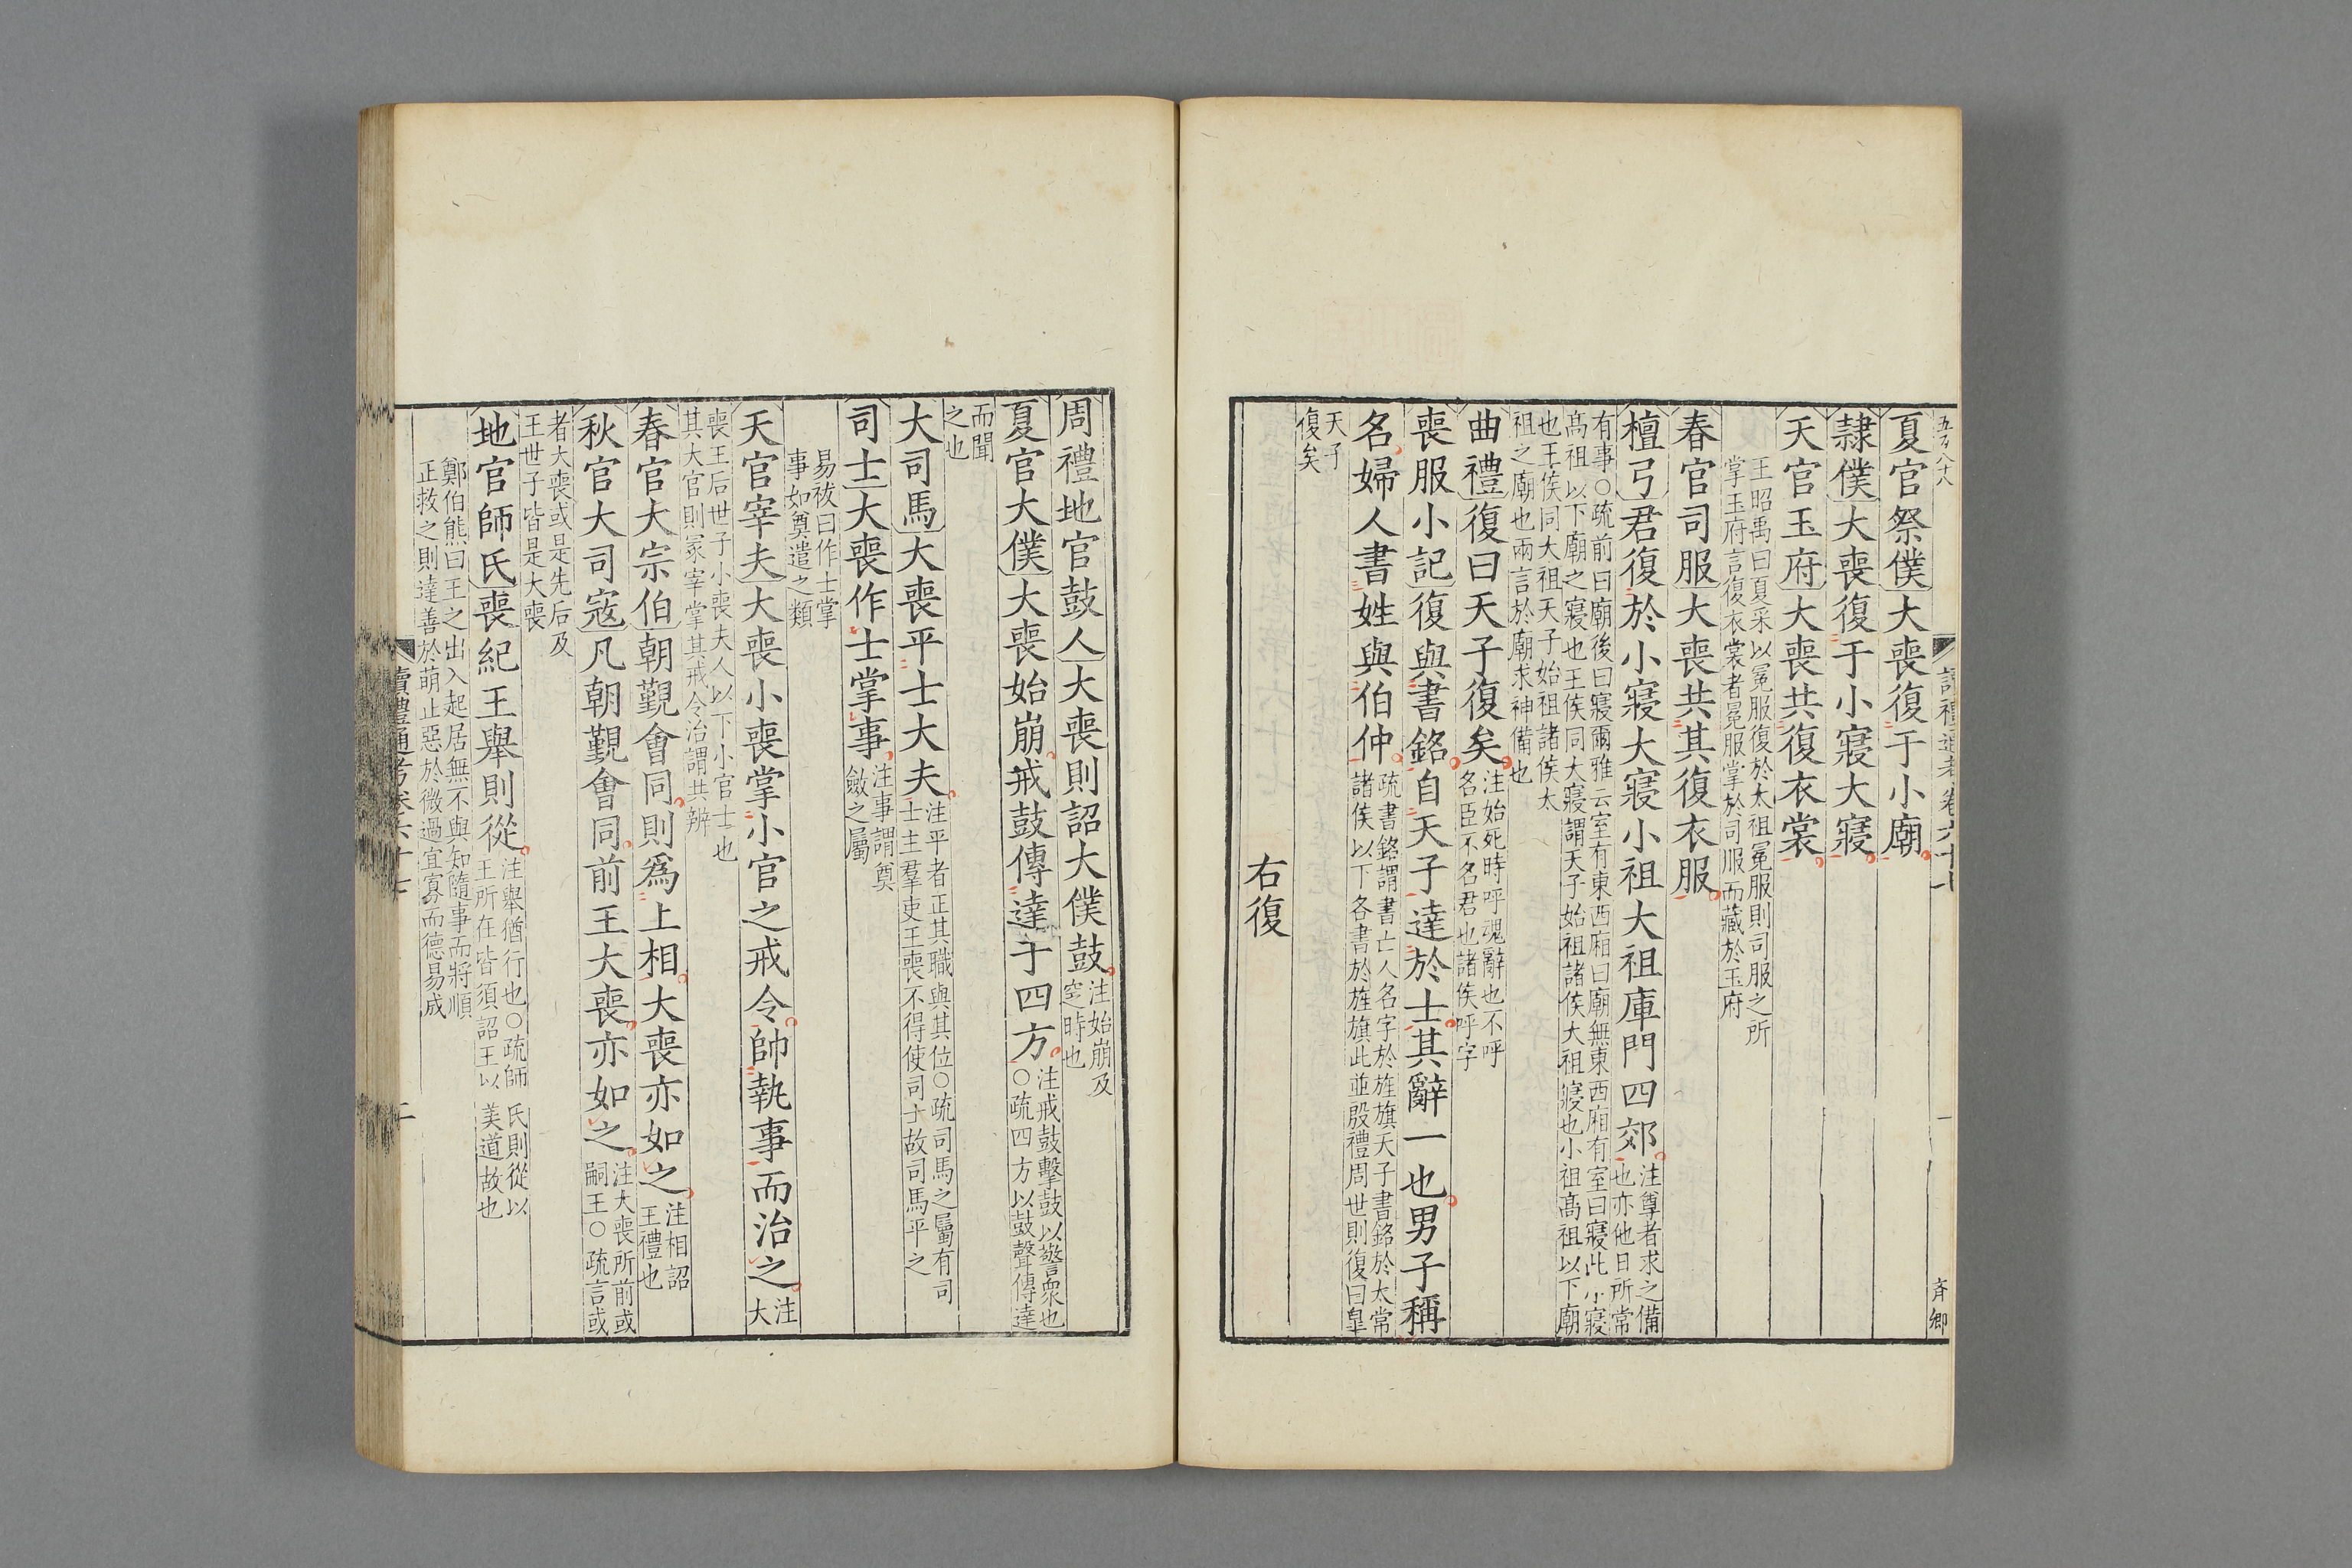 夏官祭僕大喪復于小廟
隸僕大喪復于小寢大寢
天官玉府大喪共復衣裳
王昭禹曰夏采以冕服復於太祖冕服則司服之所
掌玉府言復衣裳者冕服掌於司服而藏於玉府
春官司服大喪共其復衣服
檀弓君復於小寢大寢小祖大祖庫門四郊
注尊者求之備
也亦他日所常
有事○疏前曰廟後曰寢爾雅云室有東西廂曰廟無東西廂有室曰寢此小寢
高祖以下廟之寢也王侯同大寢謂天子始祖諸侯大祖寢也小祖高祖以下廟
也王侯同大祖天子始祖諸侯太
祖之廟也兩言於廟求神備也
曲禮復曰天子復矣
注始死時呼魂辭也不呼
名臣不名君也諸侯呼字
喪服小記復與書銘自天子達於士其辭一也男子稱
名婦人書姓與伯仲
疏書銘謂書亡人名字於旌旗天子書銘於太常
諸侯以下各書於旌旗此並殷禮周世則復曰皐
天子
復矣
右復
讀禮通考卷六十七
一
周禮地官鼓人大喪則詔大僕鼓
注始崩及
窆時也
夏官大僕大喪始崩戒鼓傳達于四方
注戒鼓擊鼓以警衆也
○疏四方以鼓聲傳達
而聞
之也
大司馬大喪平士大夫
注平者正其職與其位○疏司馬之屬有司
士主羣吏王喪不得使司士故司馬平之
司士大喪作士掌事
注事謂奠
斂之屬
易祓曰作士掌
事如奠遣之類
天官宰夫大喪小喪掌小官之戒令帥執事而治之
注
大
喪王后世子小喪夫人以下小官士也
其大官則冢宰掌其戒令治謂共辨
春官大宗伯朝覲會同則爲上相大喪亦如之
注相詔
王禮也
秋官大司寇凡朝覲會同前王大喪亦如之
注大喪所前或
嗣王○疏言或
者大喪或是先后及
王世子皆是大喪
地官師氏喪紀王舉則從
注舉猶行也○疏師氏則從以
王所在皆須詔王以美道故也
鄭伯熊曰王之出入起居無不與知隨事而將順
正救之則達善於萌止惡於微過宜寡而德易成
讀禮通考卷六十七
二